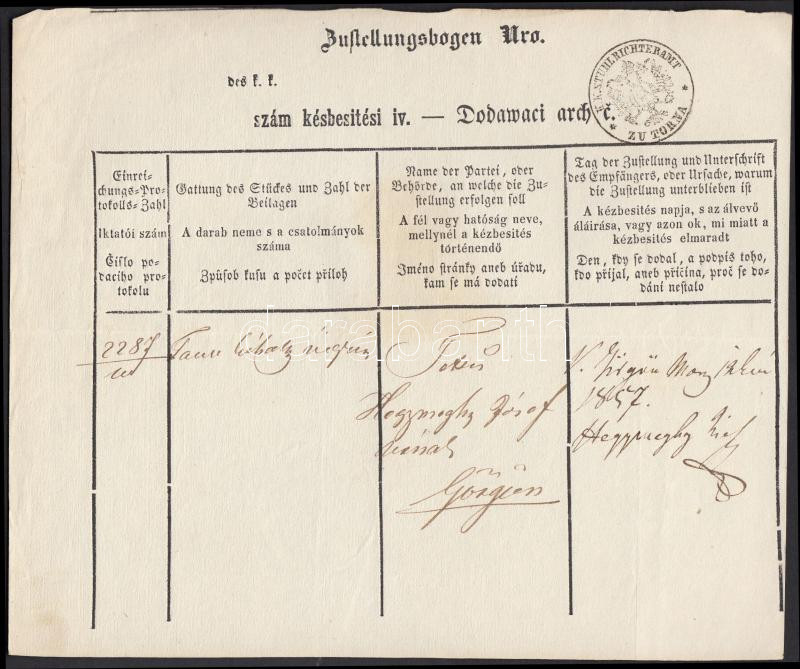 Zustellungsbogen Nro.
des k. k.
szám késbesitési iv. — Dodawaci arch č.
K.K. STUHLRICHTERAMT * ZU TORNA *
Einrei-
chungs-Pro-
tokolls-Zahl
Iktatói szám
Číslo po-
dacího pro-
tokolu
Gattung des Stückes und Zahl der
Beilagen
A darab neme s a csatolmányok
száma
Způsob kusu a počet příloh
Name der Partei, oder
Behörde, an welche die Zu-
stellung erfolgen soll
A fél vagy hatóság neve,
mellynél a kézbesités
történendő
Jméno stránky aneb úřadu,
kam se má dodati
Tag der Zustellung und Unterschrift
des Empfängers, oder Ursache, warum
die Zustellung unterblieben ist
A kézbesités napja, s az álvevő
áláirása, vagy azon ok, mi miatt a
kézbesités elmaradt
Den, kdy se dodal, a podpis toho,
kdo přijal, aneb příčina, proč se do-
dání nestalo
darabanth
2287
Hegymeghy József
úrnak
Görgőn
1857.
Hegymeghy